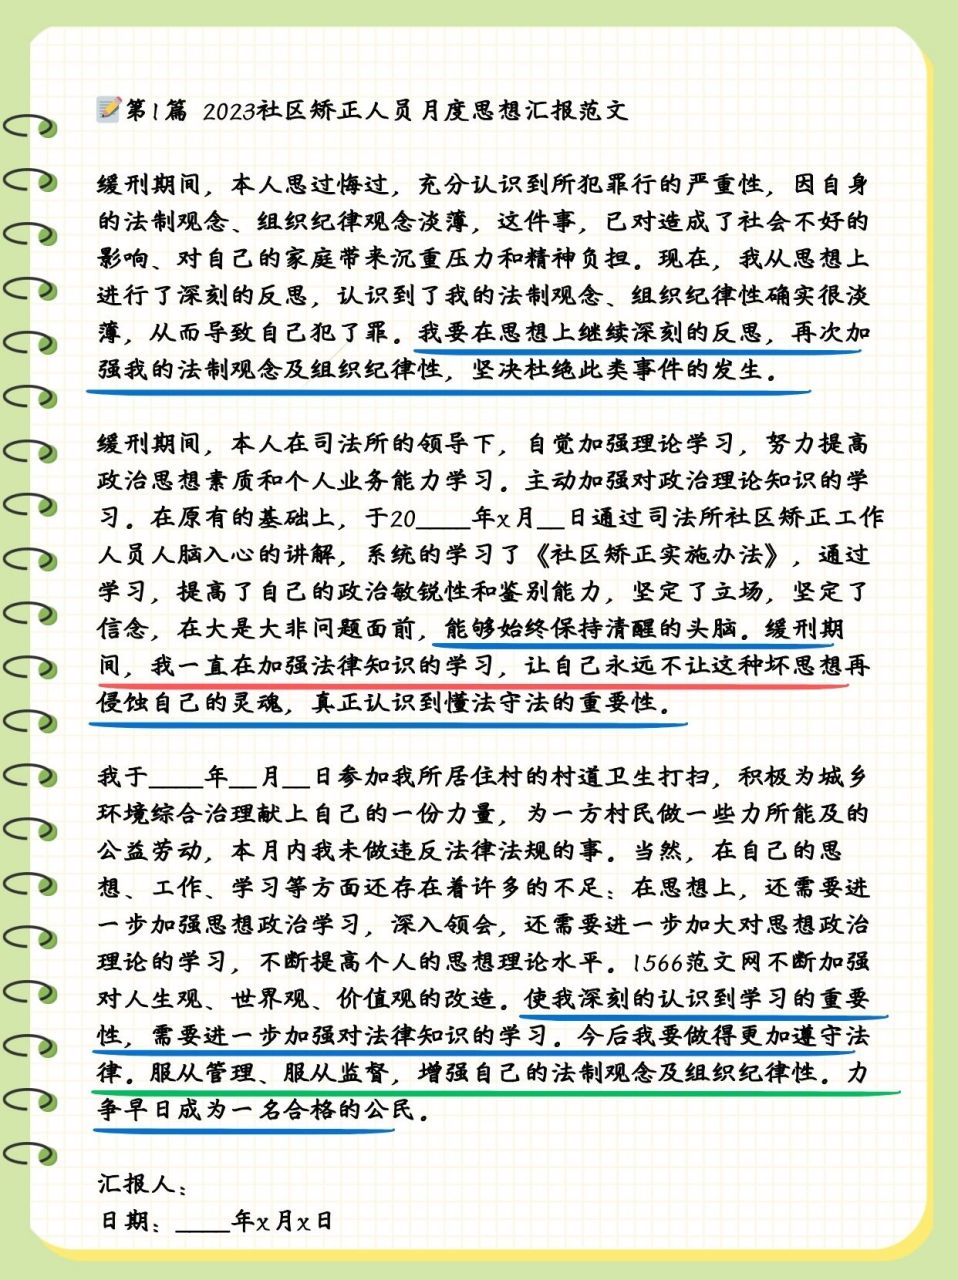 📝第1篇 2023社区矫正人员月度思想汇报范文
缓刑期间，本人思过悔过，充分认识到所犯罪行的严重性，因自身
的法制观念、组织纪律观念淡薄，这件事，已对造成了社会不好的
影响、对自己的家庭带来沉重压力和精神负担。现在，我从思想上
进行了深刻的反思，认识到了我的法制观念、组织纪律性确实很淡
薄，从而导致自己犯了罪。我要在思想上继续深刻的反思，再次加
强我的法制观念及组织纪律性，坚决杜绝此类事件的发生。
缓刑期间，本人在司法所的领导下，自觉加强理论学习，努力提高
政治思想素质和个人业务能力学习。主动加强对政治理论知识的学
习。在原有的基础上，于20____年x月__日通过司法所社区矫正工作
人员人脑入心的讲解，系统的学习了《社区矫正实施办法》，通过
学习，提高了自己的政治敏锐性和鉴别能力，坚定了立场，坚定了
信念，在大是大非问题面前，能够始终保持清醒的头脑。缓刑期
间，我一直在加强法律知识的学习，让自己永远不让这种坏思想再
侵蚀自己的灵魂，真正认识到懂法守法的重要性。
我于____年__月__日参加我所居住村的村道卫生打扫，积极为城乡
环境综合治理献上自己的一份力量，为一方村民做一些力所能及的
公益劳动，本月内我未做违反法律法规的事。当然，在自己的思
想、工作、学习等方面还存在着许多的不足：在思想上，还需要进
一步加强思想政治学习，深入领会，还需要进一步加大对思想政治
理论的学习，不断提高个人的思想理论水平。1566范文网不断加强
对人生观、世界观、价值观的改造。使我深刻的认识到学习的重要
性，需要进一步加强对法律知识的学习。今后我要做得更加遵守法
律。服从管理、服从监督，增强自己的法制观念及组织纪律性。力
争早日成为一名合格的公民。
汇报人：
日期：____年x月x日